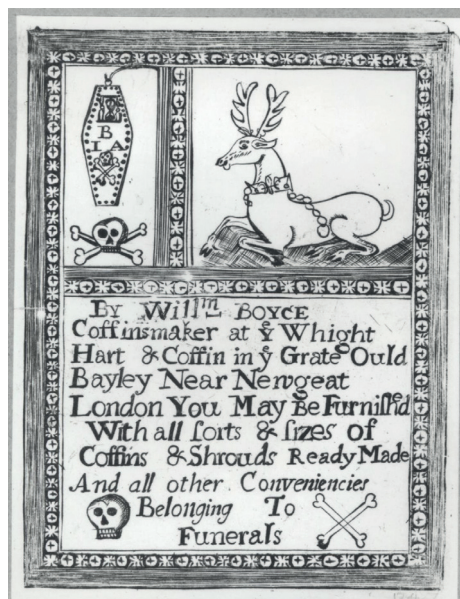 B
I A
By Will^m Boyce
Coffinsmaker at y^e Whight
Hart & Coffin in y^e Grate Ould
Bayley Near Newgeat
London You May Be Furnished
With all ſorts & ſizes of
Coffins & Shrouds Ready Made
And all other Conveniencies
Belonging To
Funerals